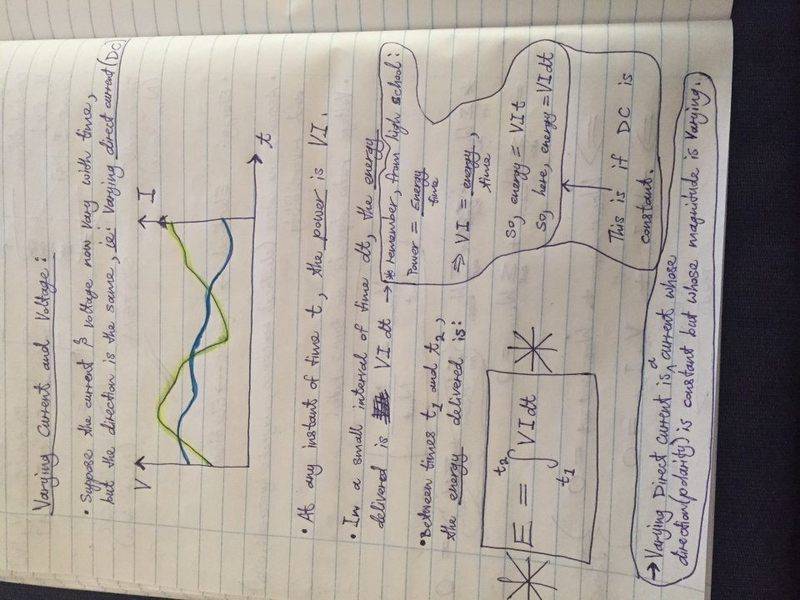 Varying Current and Voltage:
• Suppose the current & voltage now vary with time,
but the direction is the same, ie: Varying direct current (DC)
V
I
t
• At any instant of time t, the power is VI.
• In a small interval of time dt, the energy
delivered is VI dt → * remember, from high school:
Power = Energy
time
⇒ VI = energy,
time
So, energy = VIt
So, here, energy = VIdt
This is if DC is
constant.
• Between times t₁ and t₂,
the energy delivered is:
E = ∫ₜ₁ᵗ² VI dt
→ Varying Direct current is a current whose
direction(polarity) is constant but whose magnitude is Varying.